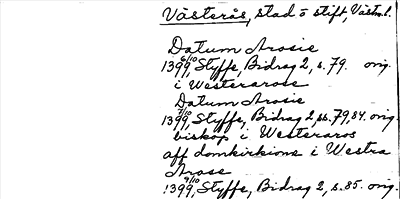 Västerås, stad o stift, Västml.
Datum Arosie
1399 6/10, Styffe, Bidrag 2, s. 79. orig.
i Westerarose
Datum Arosie
1399 7/10, Styffe, Bidrag 2, ss. 79, 84. orig.
biskop i Westeraros
aff domkirkione i Westra
Arose
1399 9/10, Styffe, Bidrag 2, s. 85. orig.